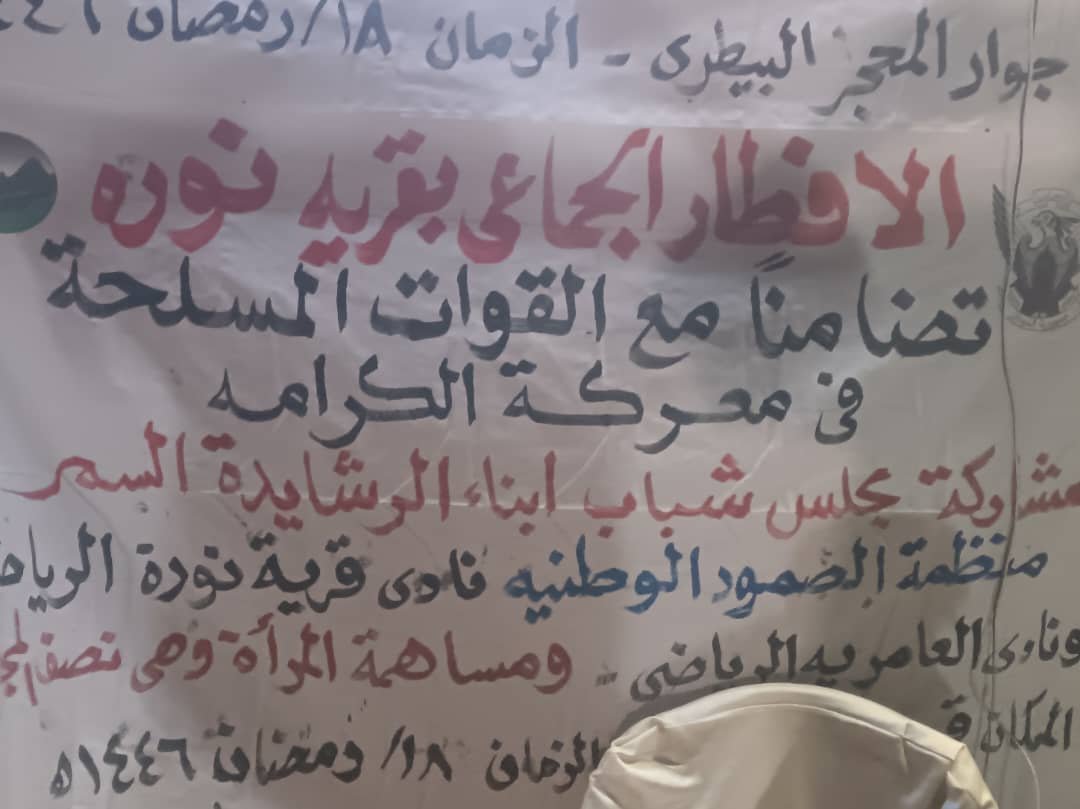 جوار المحجر البيطرى - الزمان ١٨/رمضان
الافطار الجماعى بقريه نوره
تضامناً مع القوات المسلحة
فى معركة الكرامه
مشاركة مجلس شباب ابناء الرشايدة السمر
منظمة الصمود الوطنيه نادى قرية نورة
ونادى العامريه الرياضى - ومساهمة المرأة وهى نصف
المكان الزمان ١٨/ رمضان ١٤٤٦ه